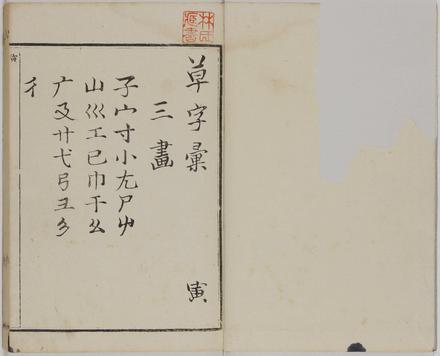 林氏藏書
草字彙 寅
三畫
子宀寸小尢尸屮
山巛工已巾干幺
广廴廾弋弓彐彡
彳